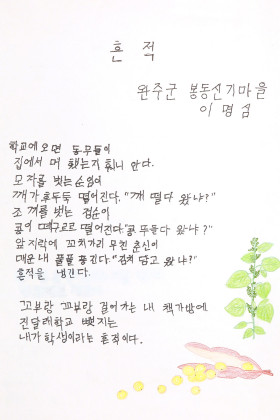 흔 적
완주군 봉동신기마을
이 명 심
학교에 오면 동무들이
집에서 머 했는지 훤니 안다.
모자를 벗는 순임이
깨가 후두둑 떨어진다. "깨 떨다 왔냐?"
조끼를 벗는 검순이
콩이 떼구르르 떨어진다. "콩 뚜들다 왔냐?"
앞지락에 꼬치가리 무친 춘신이
매운내 풀풀 풍긴다. "김치 담고 왔냐?"
흔적을 냉긴다.
꼬부랑 꼬부랑 걸어가는 내 책가방에
진달래학교 뺏지는
내가 학생이라는 흔적이다.